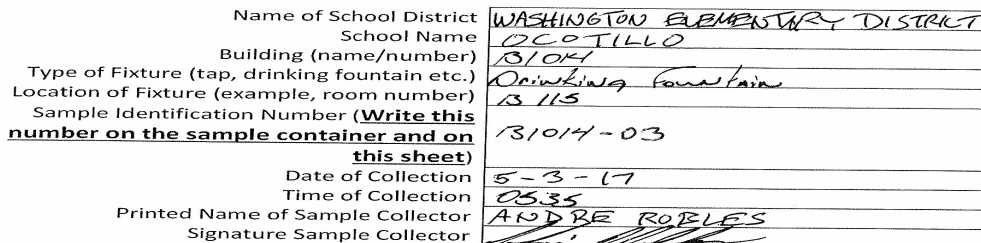 Name of School District WASHINGTON ELEMENTARY DISTRICT
School Name OCOTILLO
Building (name/number) B1014
Type of Fixture (tap, drinking fountain etc.) Drinking Fountain
Location of Fixture (example, room number) B 115
Sample Identification Number (Write this
number on the sample container and on B1014-03
this sheet)
Date of Collection 5-3-17
Time of Collection 0535
Printed Name of Sample Collector ANDRE ROBLES
Signature Sample Collector